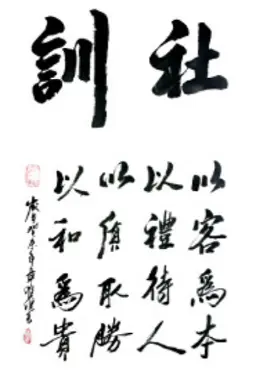 社訓
以客為本
以禮待人
以質取勝
以和為貴